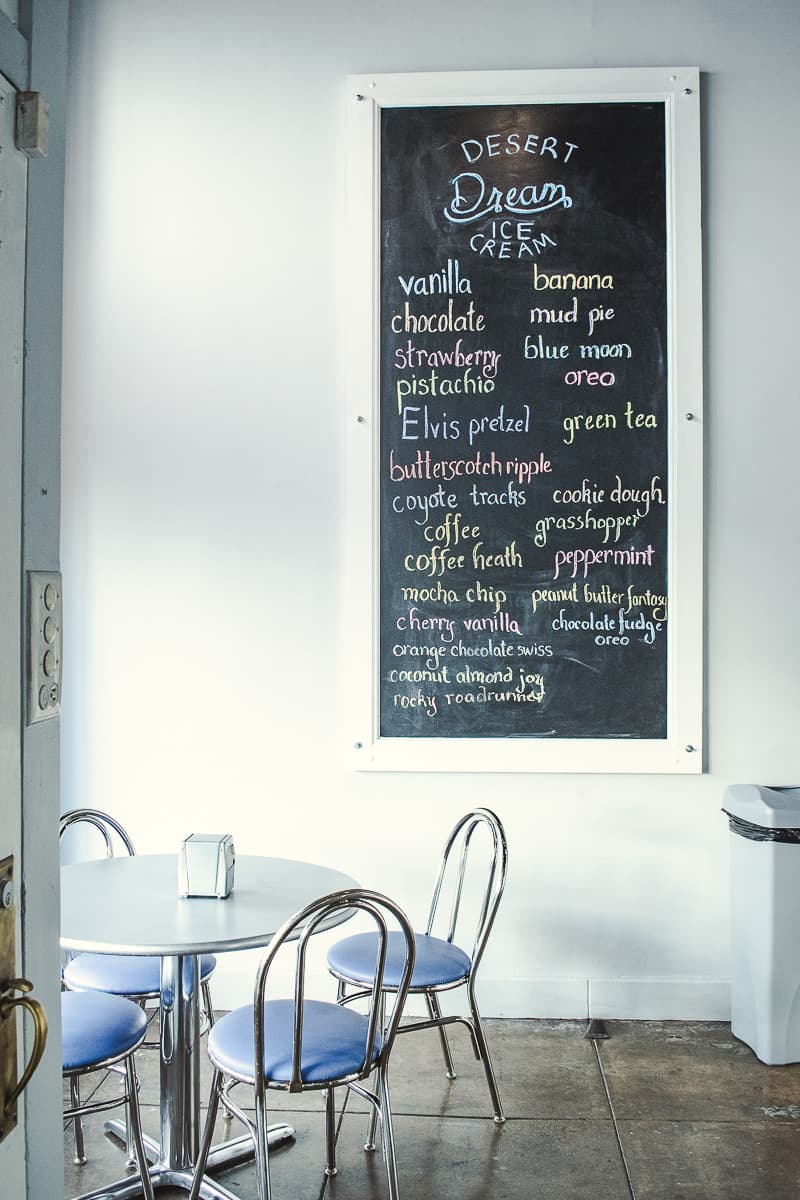 DESERT
Dream
ICE
CREAM
vanilla
chocolate
strawberry
pistachio
Elvis pretzel
butterscotch ripple
coyote tracks
coffee
coffee heath
mocha chip
cherry vanilla
orange chocolate swiss
coconut almond joy
rocky roadrunner
banana
mud pie
blue moon
oreo
green tea
cookie dough.
grasshopper
peppermint
peanut butter fantasy
chocolate fudge
oreo